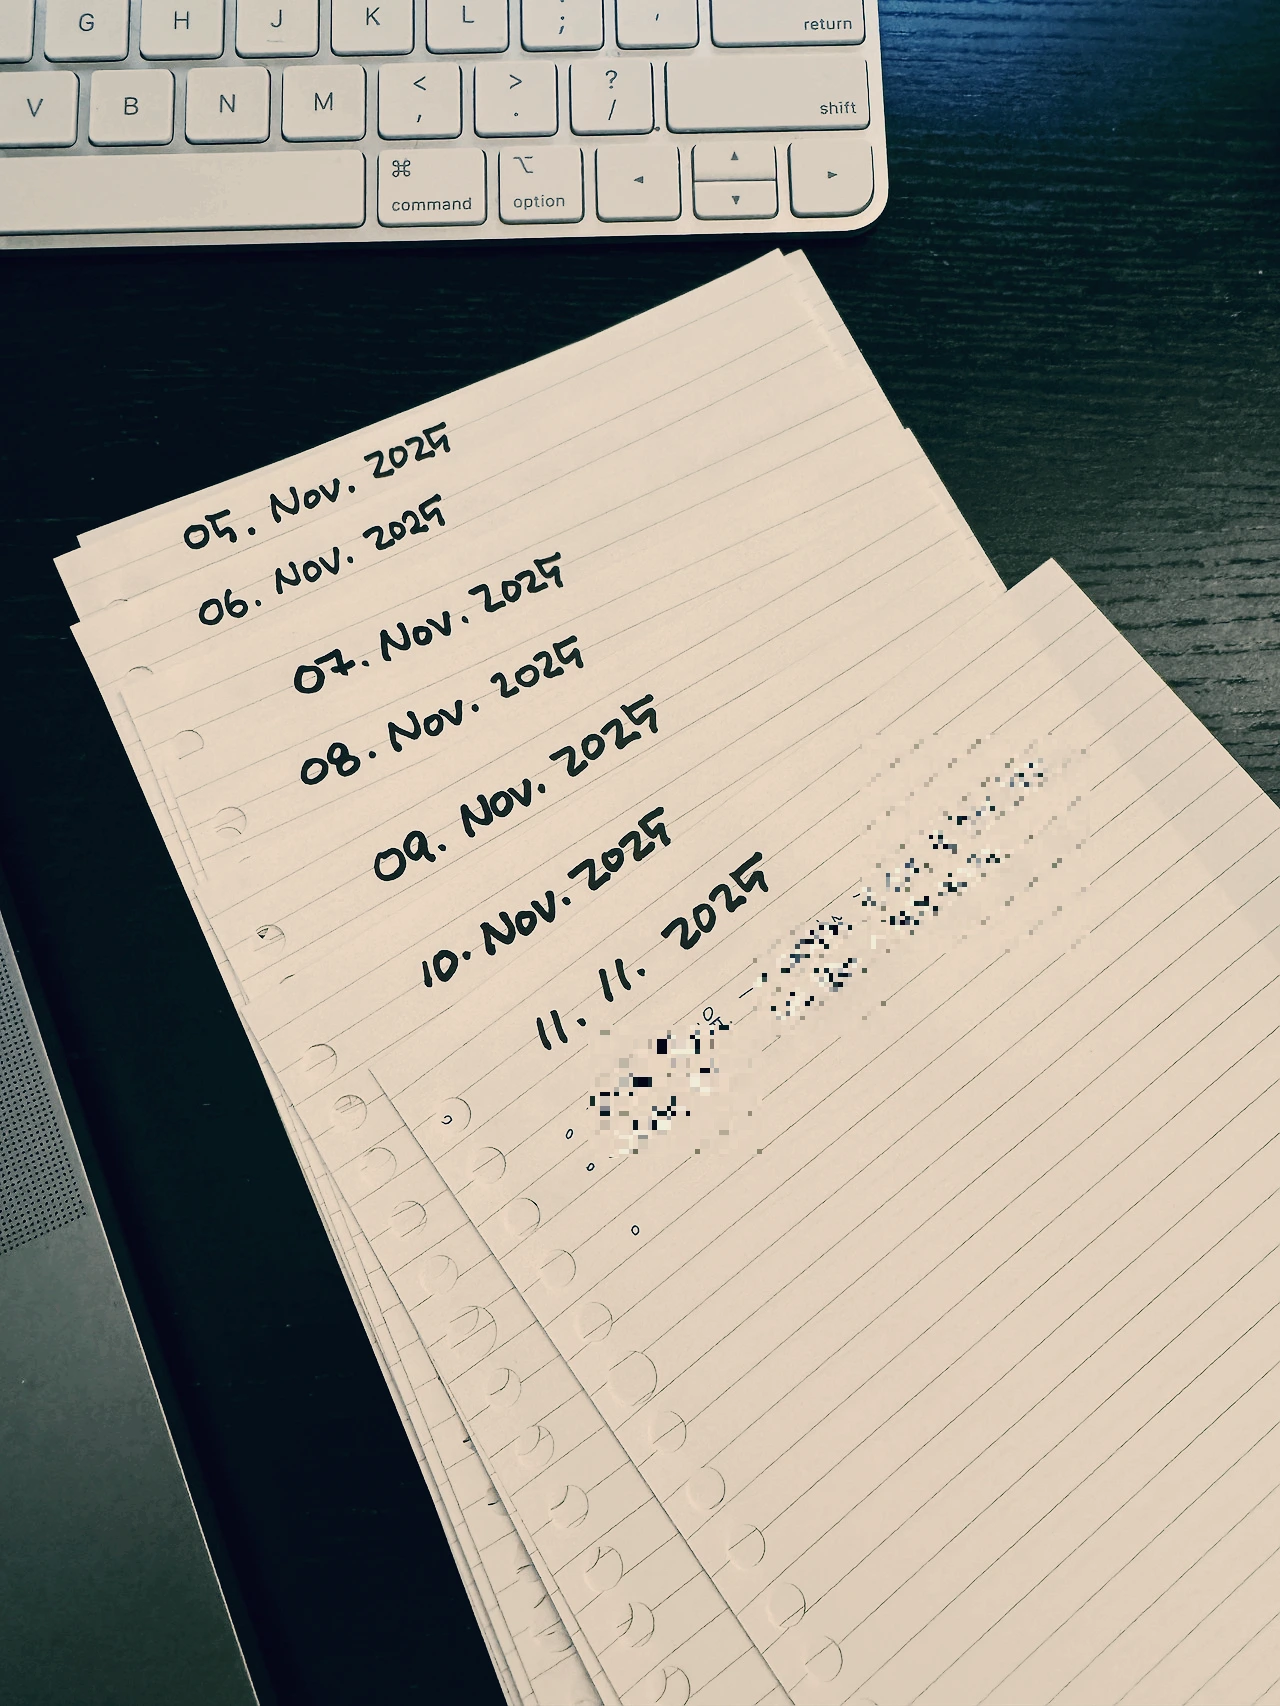 G H J K L : ; " ' return
V B N M < , > . ? / shift
⌘ command ⌥ option ◂ ▴ ▾ ▸
05. Nov. 2025
06. Nov. 2025
07. Nov. 2025
08. Nov. 2025
09. Nov. 2025
10. Nov. 2025
11. 11. 2025